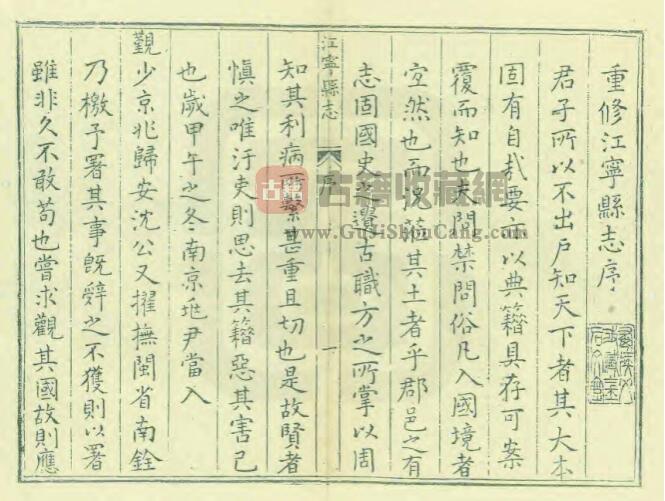 重修江寧縣志序
君子所以不出戶知天下者其大本
固有自哉要亦以典籍具存可案
覆而知也未聞禁問俗凡入國境者
宜然也而況蒞其土者乎郡邑之有
志固國史之遺古職方之所掌以周
江寧縣志
序
一
知其利病所繫甚重且切也是故賢者
慎之唯汙吏則思去其籍惡其害己
也歲甲午之冬南京兆尹當入
覲少京兆歸安沈公又擢撫閩省南銓
乃檄予署其事既辭之不獲則以署
雖非久不敢苟也嘗求觀其國故則應
古籍
古籍收藏網
www.GuJiShouCang.com